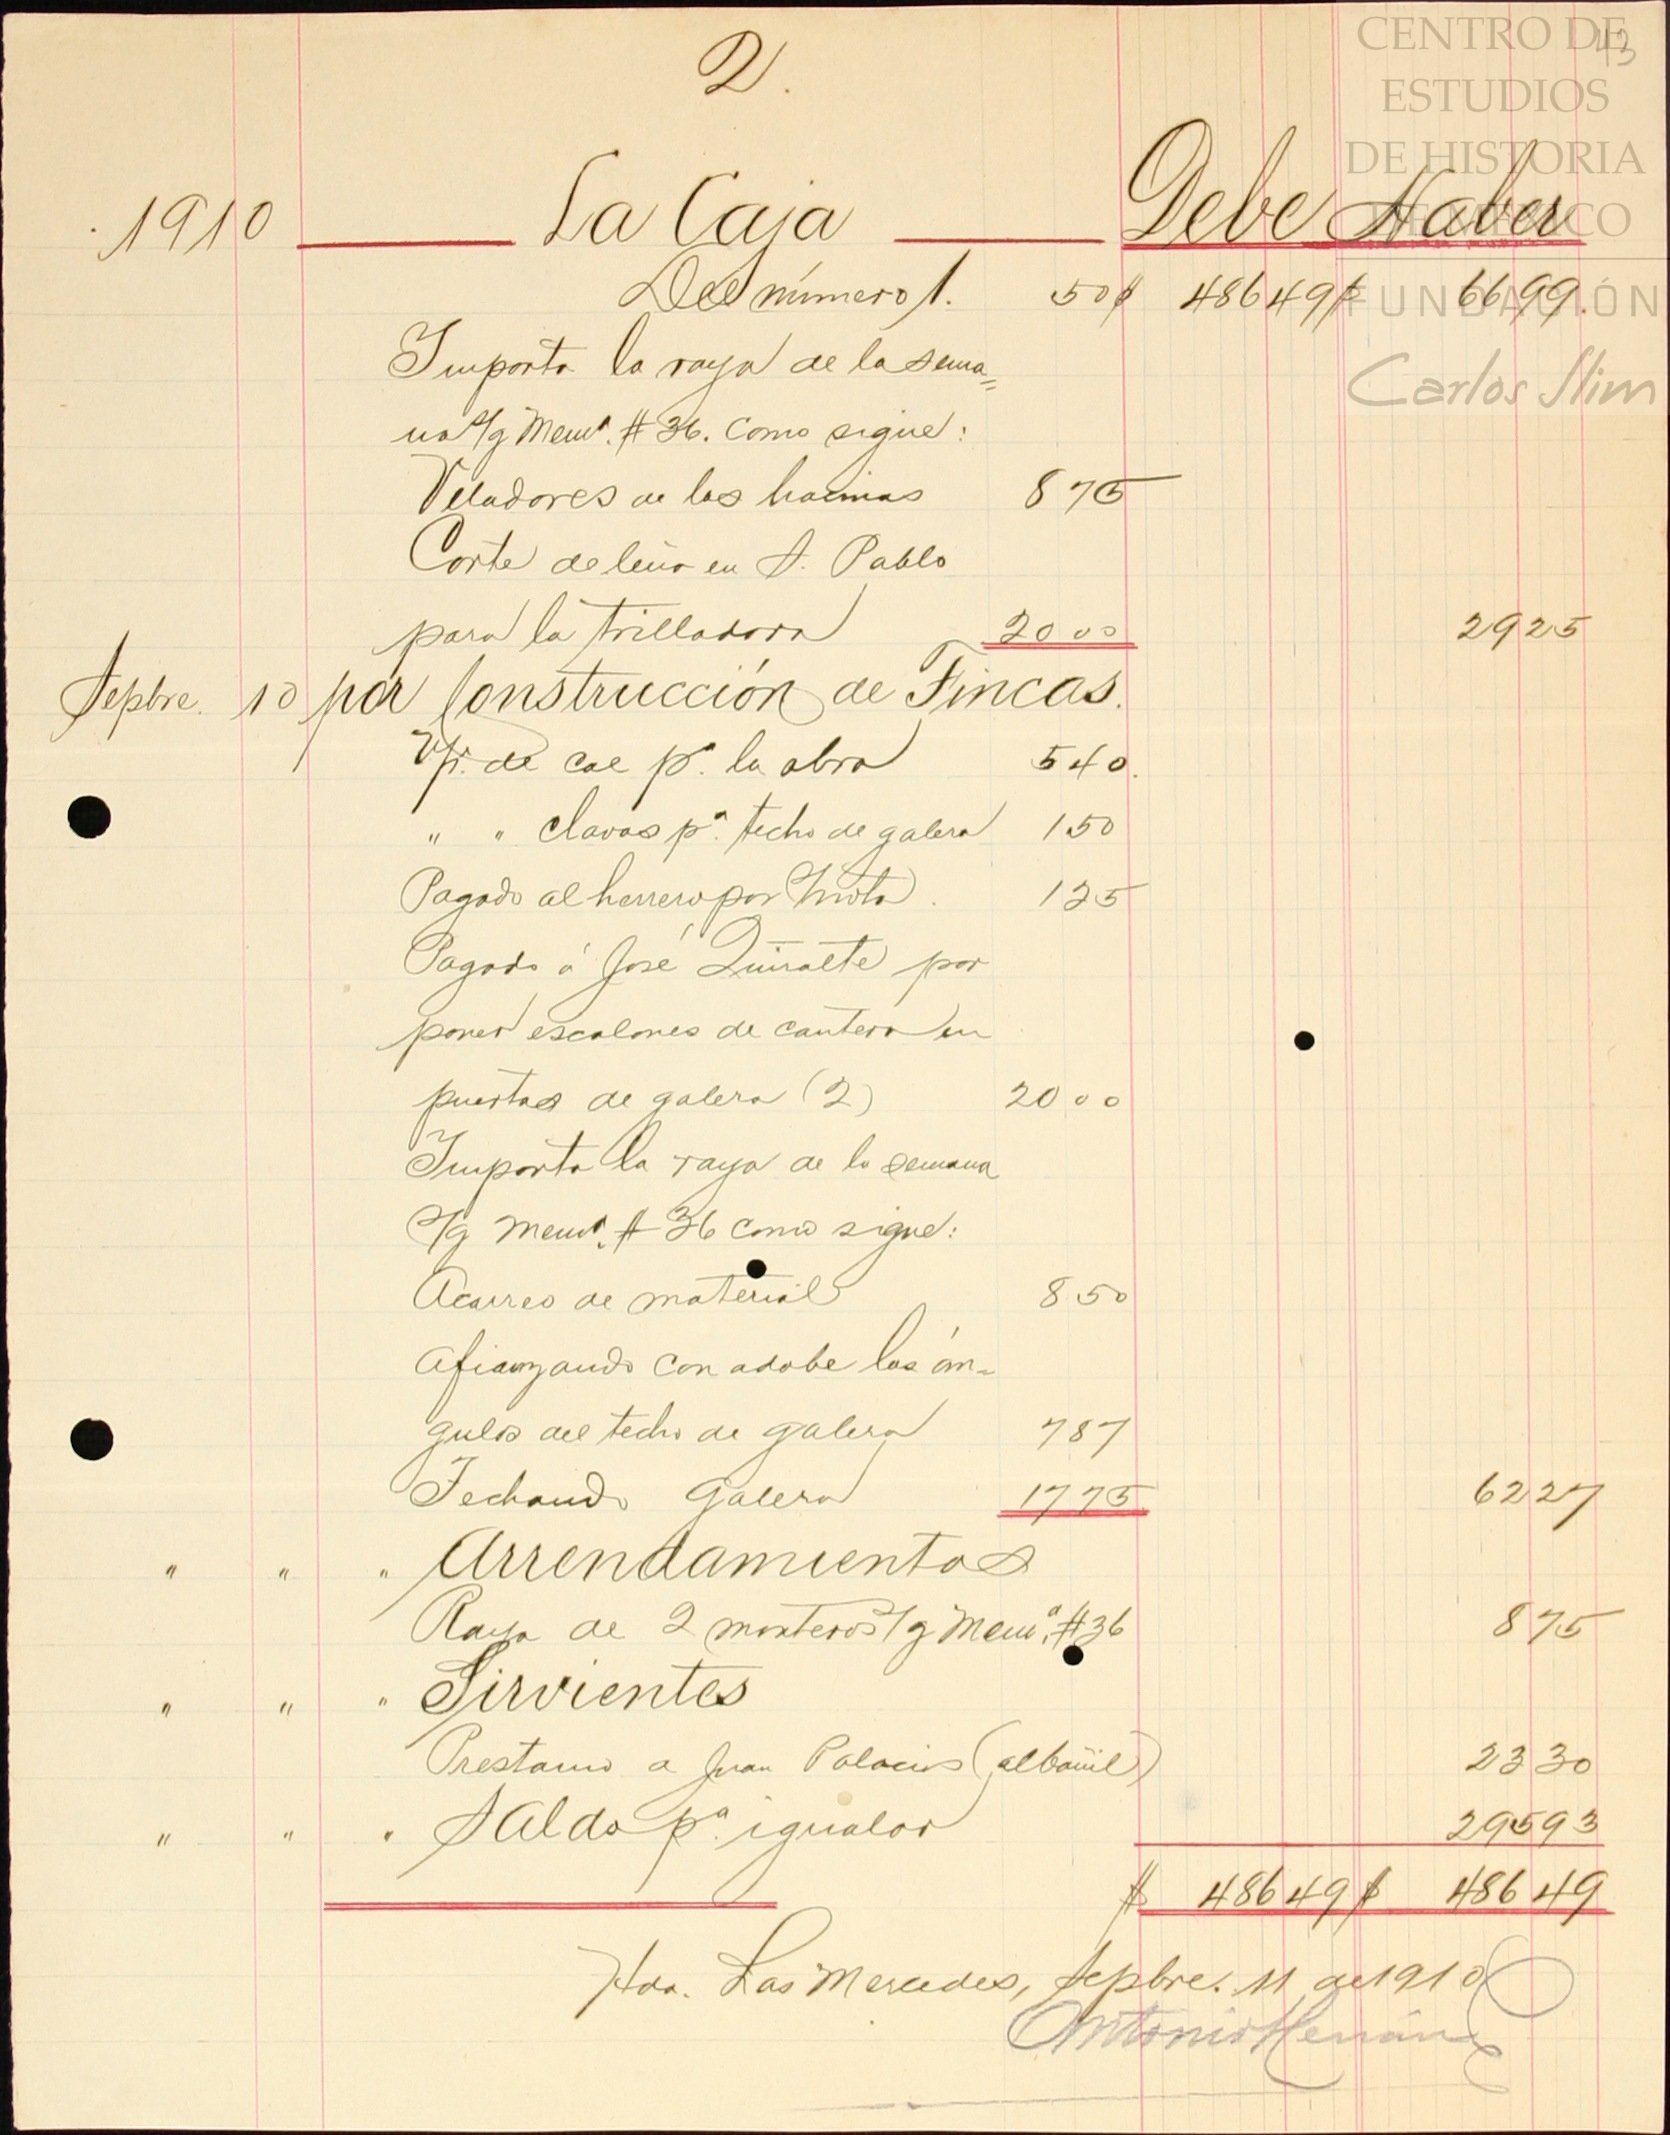 2.
43
CENTRO DE
ESTUDIOS
DE HISTORIA
DE MÉXICO
FUNDACIÓN
Carlos Slim
1910 La Caja Debe Haber
Del número 1. 50 $ 486 49 $ 66 99.
Importa la raya de la sema=
na s/g Mema. # 36. como sigue:
Veladores de las hacinas 8 75
Corte de leña en S. Pablo
para la trilladora 20 00 29 25
Sepbre. 10 por Construcción de Fincas.
de cal pa. la obra 5 40.
" " clavos pa. techo de galera 1 50
Pagado al herrero por nota. 1 25
Pagado á José por
poner escalones de cantera en
puertas de galera (2) 20 00
Importa la raya de la semana
s/g Mema. # 36 como sigue:
Acarreo de material 8 50
Afianzando con adobe los án=
gulos del techo de galera 7 87
Techando galera 17 75 62 27
" " " Arrendamientos
Raya de 2 monteros s/g Mema. # 36 8 75
" " " Sirvientes
Prestamo a Juan Palacios (albañil) 23 30
" " " Saldo pa. igualar 295 93
$ 486 49 $ 486 49
Hda. Las Mercedes, Sepbre. 11 de 1910
Antonio